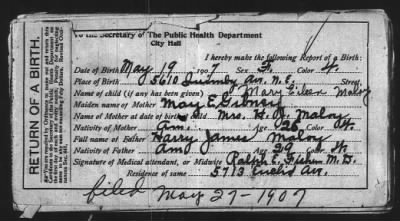 To the Secretary of The Public Health Department
City Hall
I hereby make the following Report of a Birth:
Date of Birth May 19 1907 Sex F. Color W.
Place of Birth 5610 Quimby Av. N.E. Street,
Name of child (if any has been given) Mary Eileen Maloy
Maiden name of Mother May E. Gibney
Name of Mother at date of birth Mrs. H. J. Maloy
Nativity of Mother Am. Age 26 Color W.
Full name of Father Harry James Maloy
Nativity of Father Am. Age 29 Color W.
Signature of Medical attendant, or Midwife Ralph E. M.D.
Residence of same 5713 Euclid Av.
filed May 27-1907
RETURN OF A BIRTH.